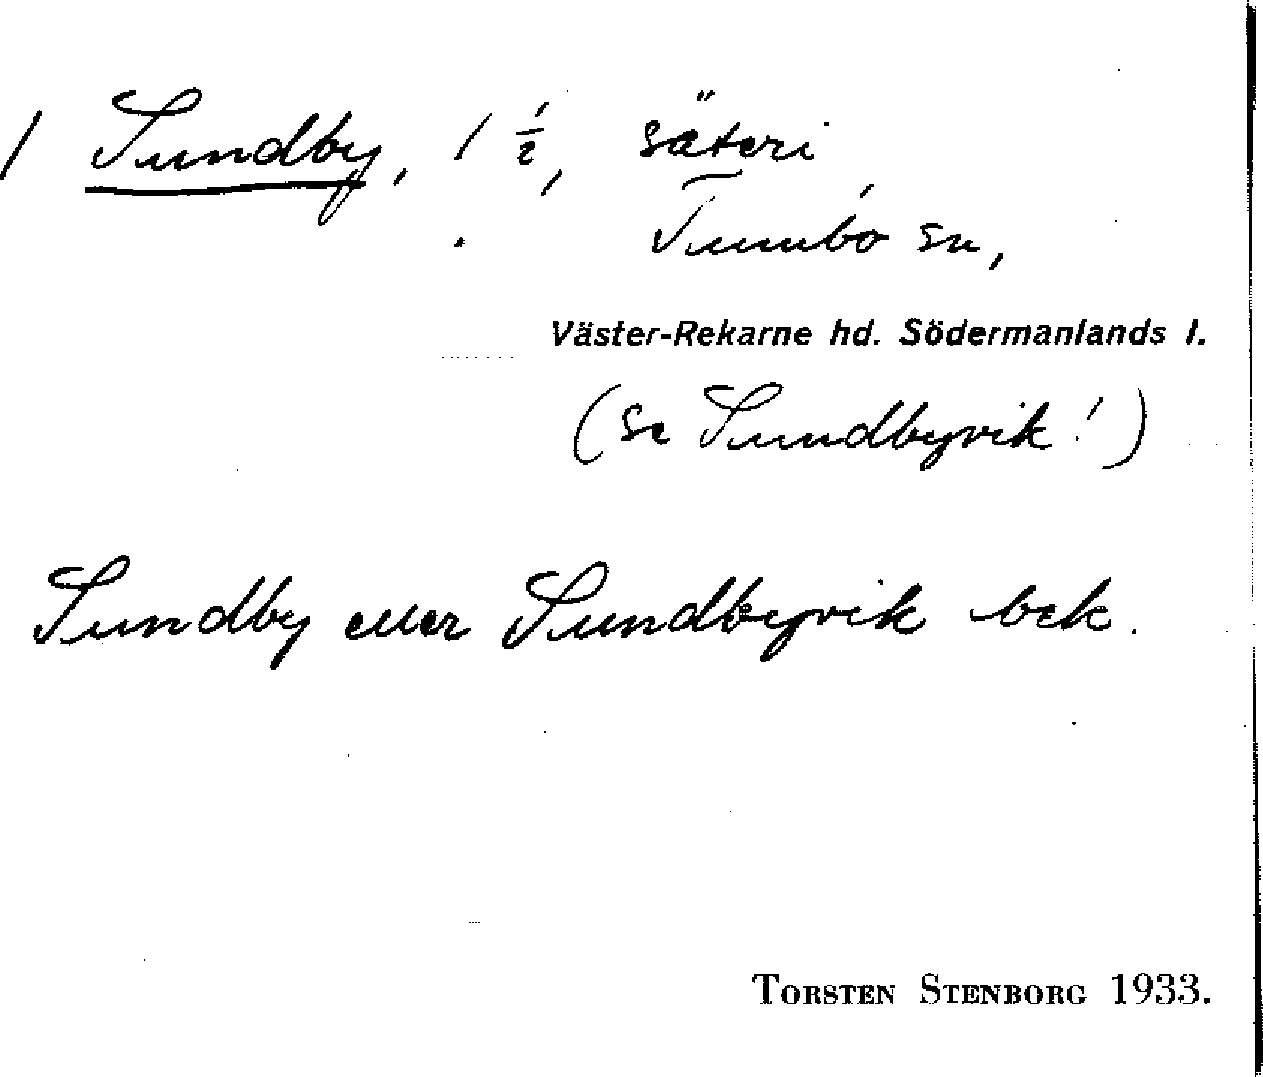 / Sundby, 1 1/2, säteri,
Tumbo sn,
Väster-Rekarne hd. Södermanlands l.
(se Sundbyvik!)
Sundby eller Sundbyvik bek.
TORSTEN STENBORG 1933.